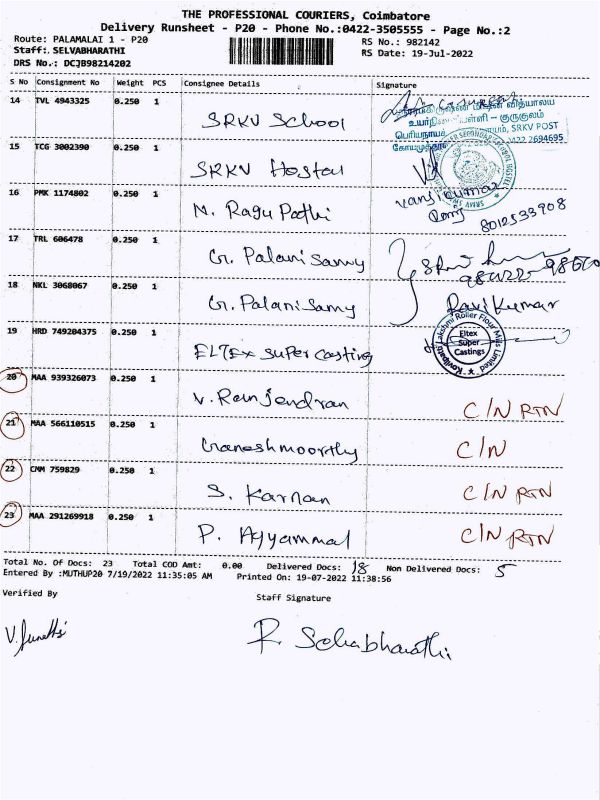 THE PROFESSIONAL COURIERS, Coimbatore
Delivery Runsheet - P20 - Phone No.:0422-3505555 - Page No.:2
Route: PALAMALAI 1 - P20
RS No.: 982142
Staff: SELVABHARATHI
RS Date: 19-Jul-2022
DRS No.: DCJB98214202
S No Consignment No Weight PCS Consignee Details Signature
14 TVL 4943325 0.250 1 SRKV School
உயர்நிலைப்பள்ளி - குருகுலம்
SRKV POST
2694695
15 TCG 3002390 0.250 1 SRKV Hostal
16 PMK 1174802 0.250 1 N. Ragu Pathi
8012533908
17 TRL 606478 0.250 1 Gr. Palani Samy
18 NKL 3068067 0.250 1 Gr. Palani Samy Ravi Kumar
19 HRD 749204375 0.250 1 ELTEX Super Casting
Kovilpatti Lakshmi Roller Flour Mills Limited
Eltex
Super
Castings
20 MAA 939326073 0.250 1 V. Ranjendran C/N RTN
21 MAA 566110515 0.250 1 Ganeshmoorthy C/N
22 CMM 759829 0.250 1 S. Karnan C/N RTN
23 MAA 291269918 0.250 1 P. Ayyammal C/N RTN
Total No. Of Docs: 23 Total COD Amt: 0.00 Delivered Docs: 18 Non Delivered Docs: 5
Entered By :MUTHUP20 7/19/2022 11:35:05 AM Printed On: 19-07-2022 11:38:56
Verified By Staff Signature
R. Selvabharathi